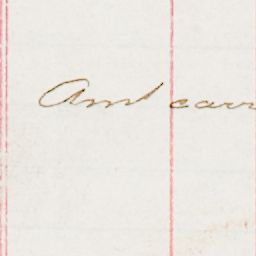 Amt carr